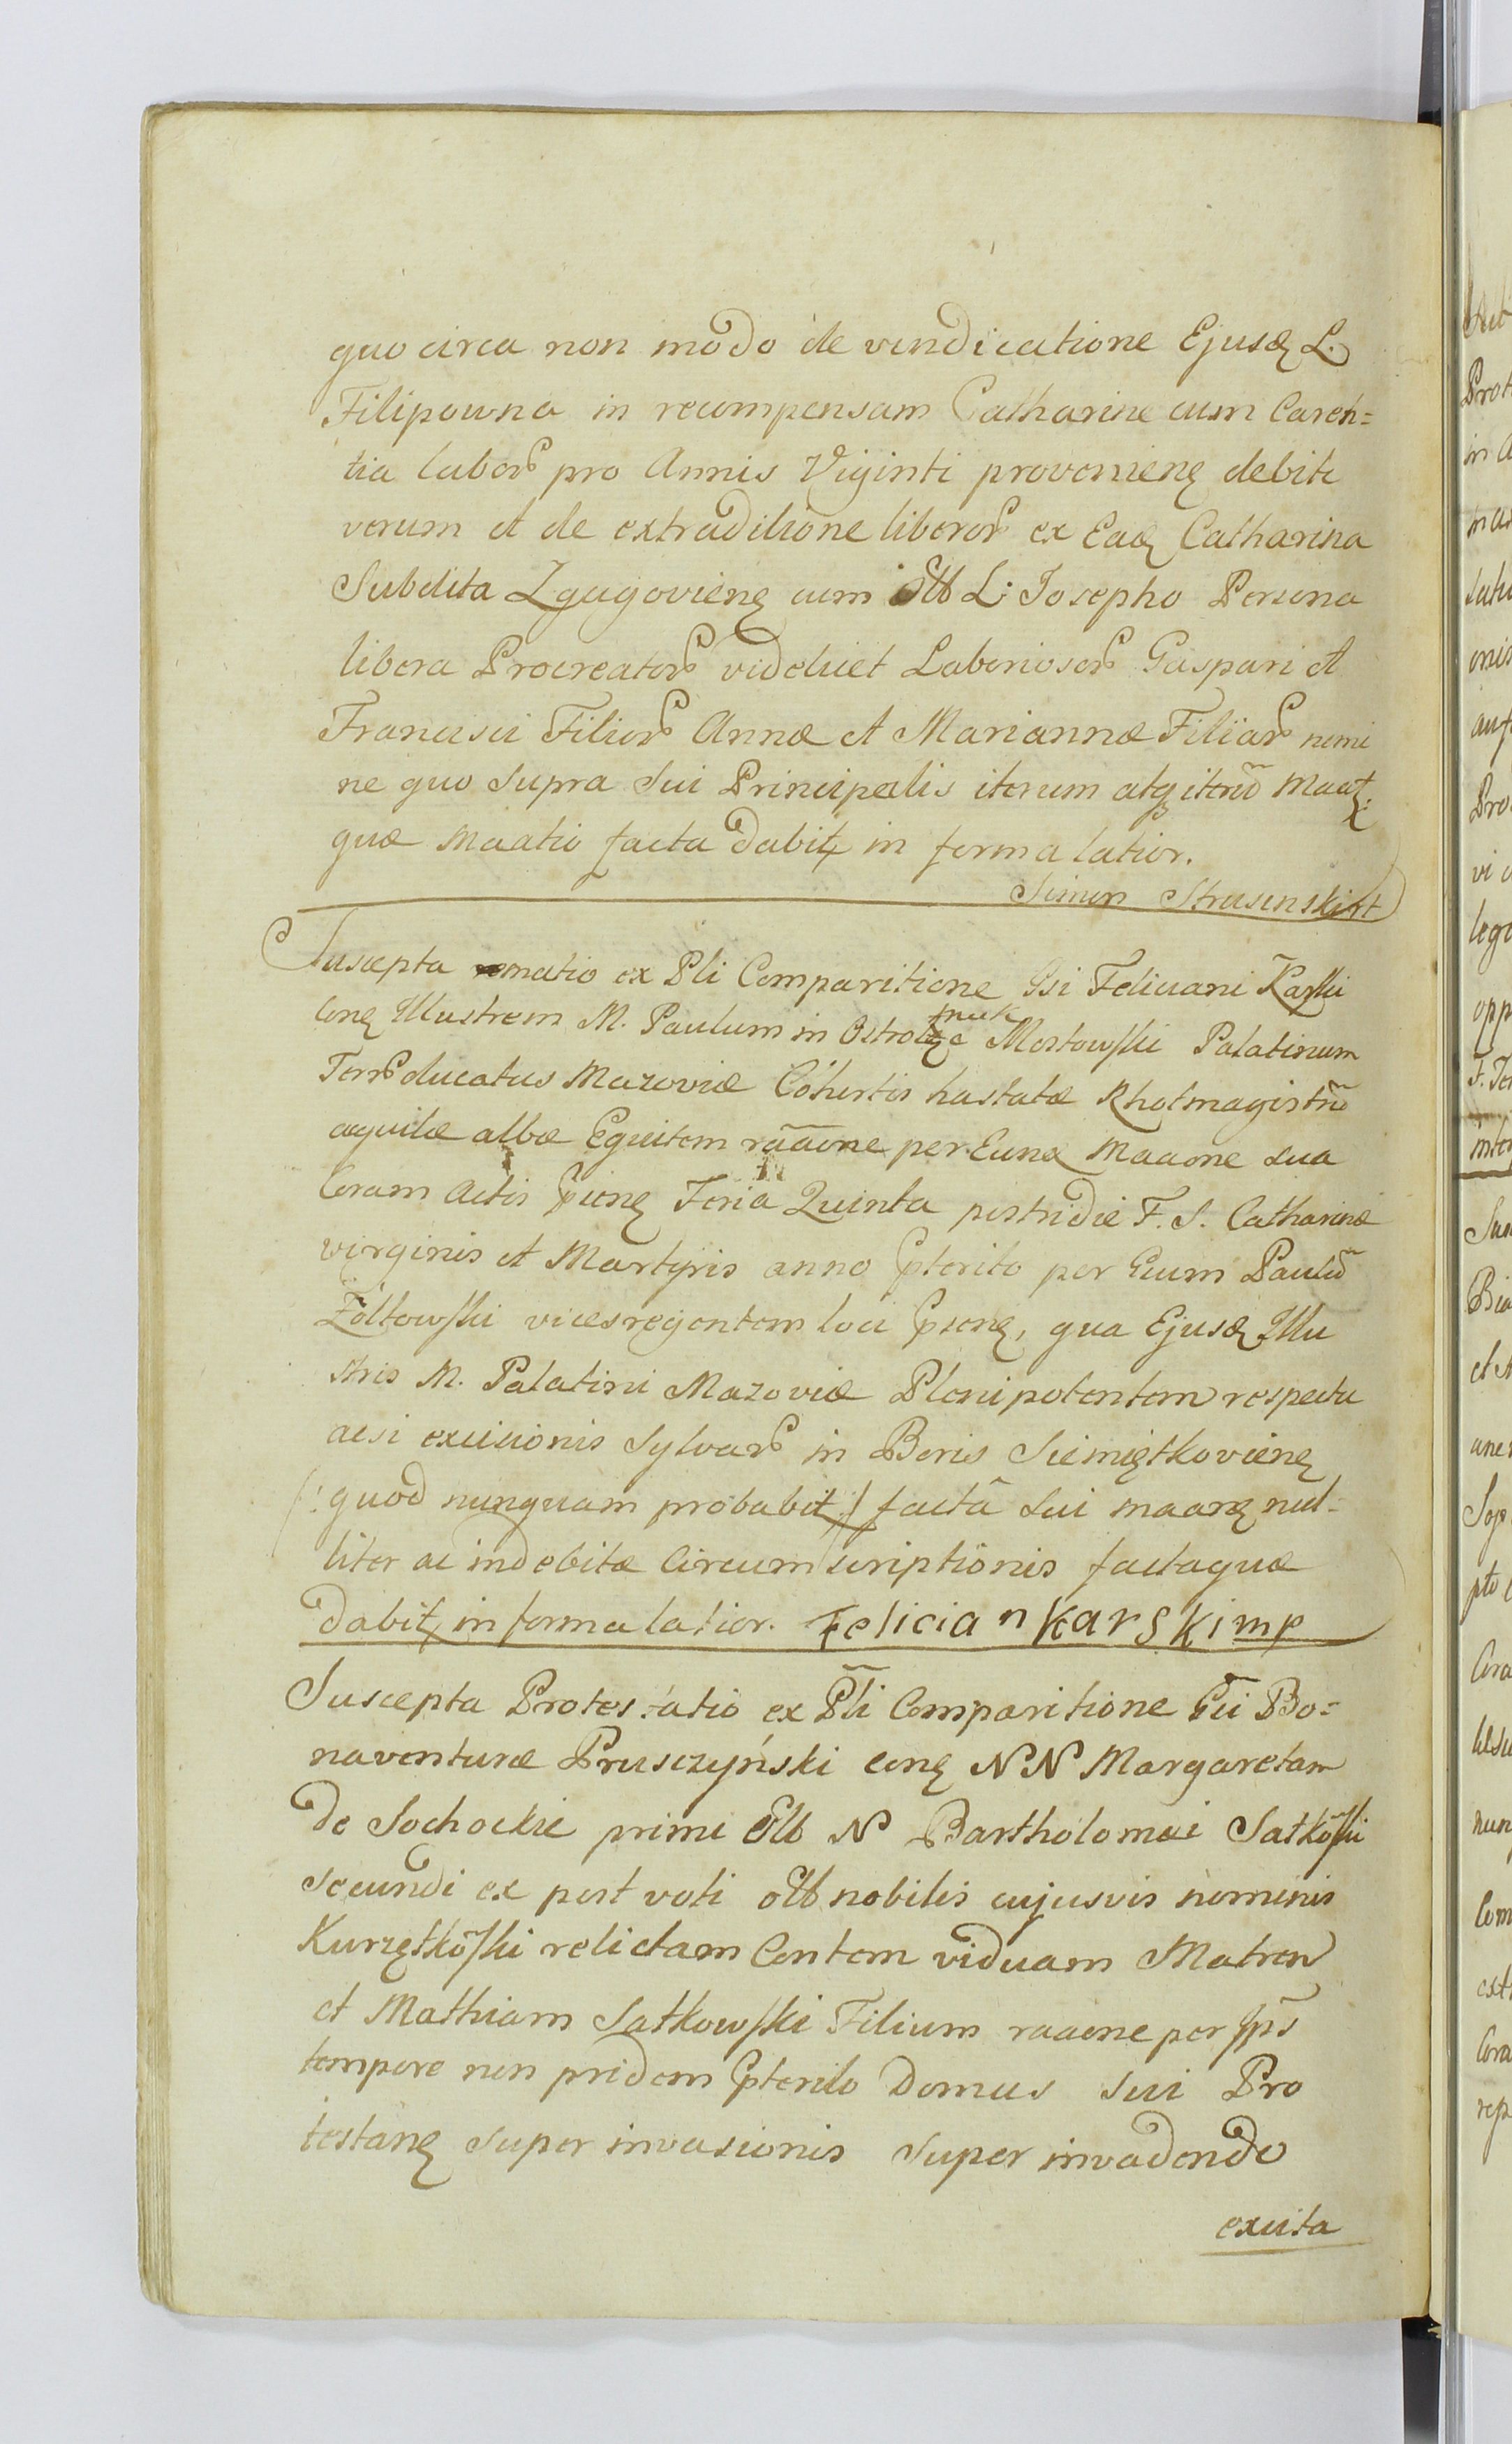 quo circa non modo de vindicatione Ejusdę L.
Filipowna in recompensam Catharine cum Caren=
tia labor pro Annis Viginti provenienę debite
verum et de extraditione liberor ex Eadę Catharina
Subdita Zgugovienę cum Olb L: Josepho Persona
libera Procreator videlicet Laboriosor Gaspari et
Francisci Filior Annæ et Mariannæ Filiar nomi
ne quo supra sui Principalis iterum atq iterũ Maatę.
quæ Maatio facta dabitę in forma latior.
Simon Strusinski
Suscepta matio ex Pli Comparitione Gsi Feliciani Karſki
Conę Illustrem M. Paulum in Mostowſki Palatinum
Terr ducatus Mazoviæ Cohortis hastatæ Rhotmagistrũ
aquilæ albæ Equitem rããone per Eunę Maaone sua
Coram Actis Gsienę Feria Quinta postridie F. S. Catharinæ
virginis et Martyris anno Gpterito per Gsum Paulũ
Żołtowſki vicesregentem loci Gpsenę, qua Ejusdę Illu
stris M. Palatini Mazoviæ Plenipotentem respectu
acsi excisionis sylvar in Bonis Siemiątkovienę
(: quod nunquam probabit :) factã sui maanę nul=
liter ac indebitæ Circumscriptionis factaquæ
dabitę in forma latior. Felician Karski mp
Suscepta Protestatio ex Pl̃i Comparitione Gsĩ Bo=
naventuræ Prusczyński Conę N N Margaretam
de Sochockie primi Olb N Bartholomæi Satkõſki
secundi ex post voti Olb nobilis cujusvis nominis
Kurzętkõſki relictam Contem viduam Matrem
et Mathiam Satkowſki Filium raaone per Ipõs
tempore non pridem Gpterito Domus sui Pro
testanę super invasionis super invadendo
excita